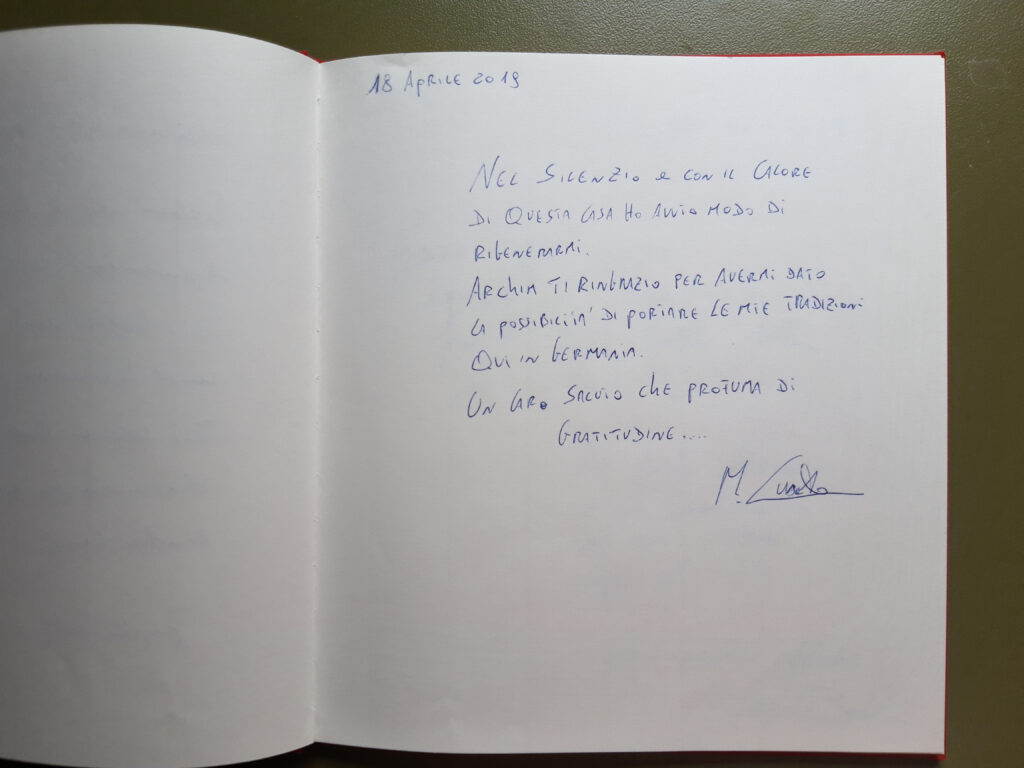 18 APRILE 2019
NEL SILENZIO e CON IL CALORE
DI QUESTA CASA HO AVUTO MODO DI
RIGENERARMI.
ARCHIM TI RINGRAZIO PER AVERMI DATO
LA POSSIBILITÀ DI PORTARE LE MIE TRADIZIONI
QUI IN GERMANIA.
UN CARO SALUTO CHE PROFUMA DI
GRATITUDINE....
M.